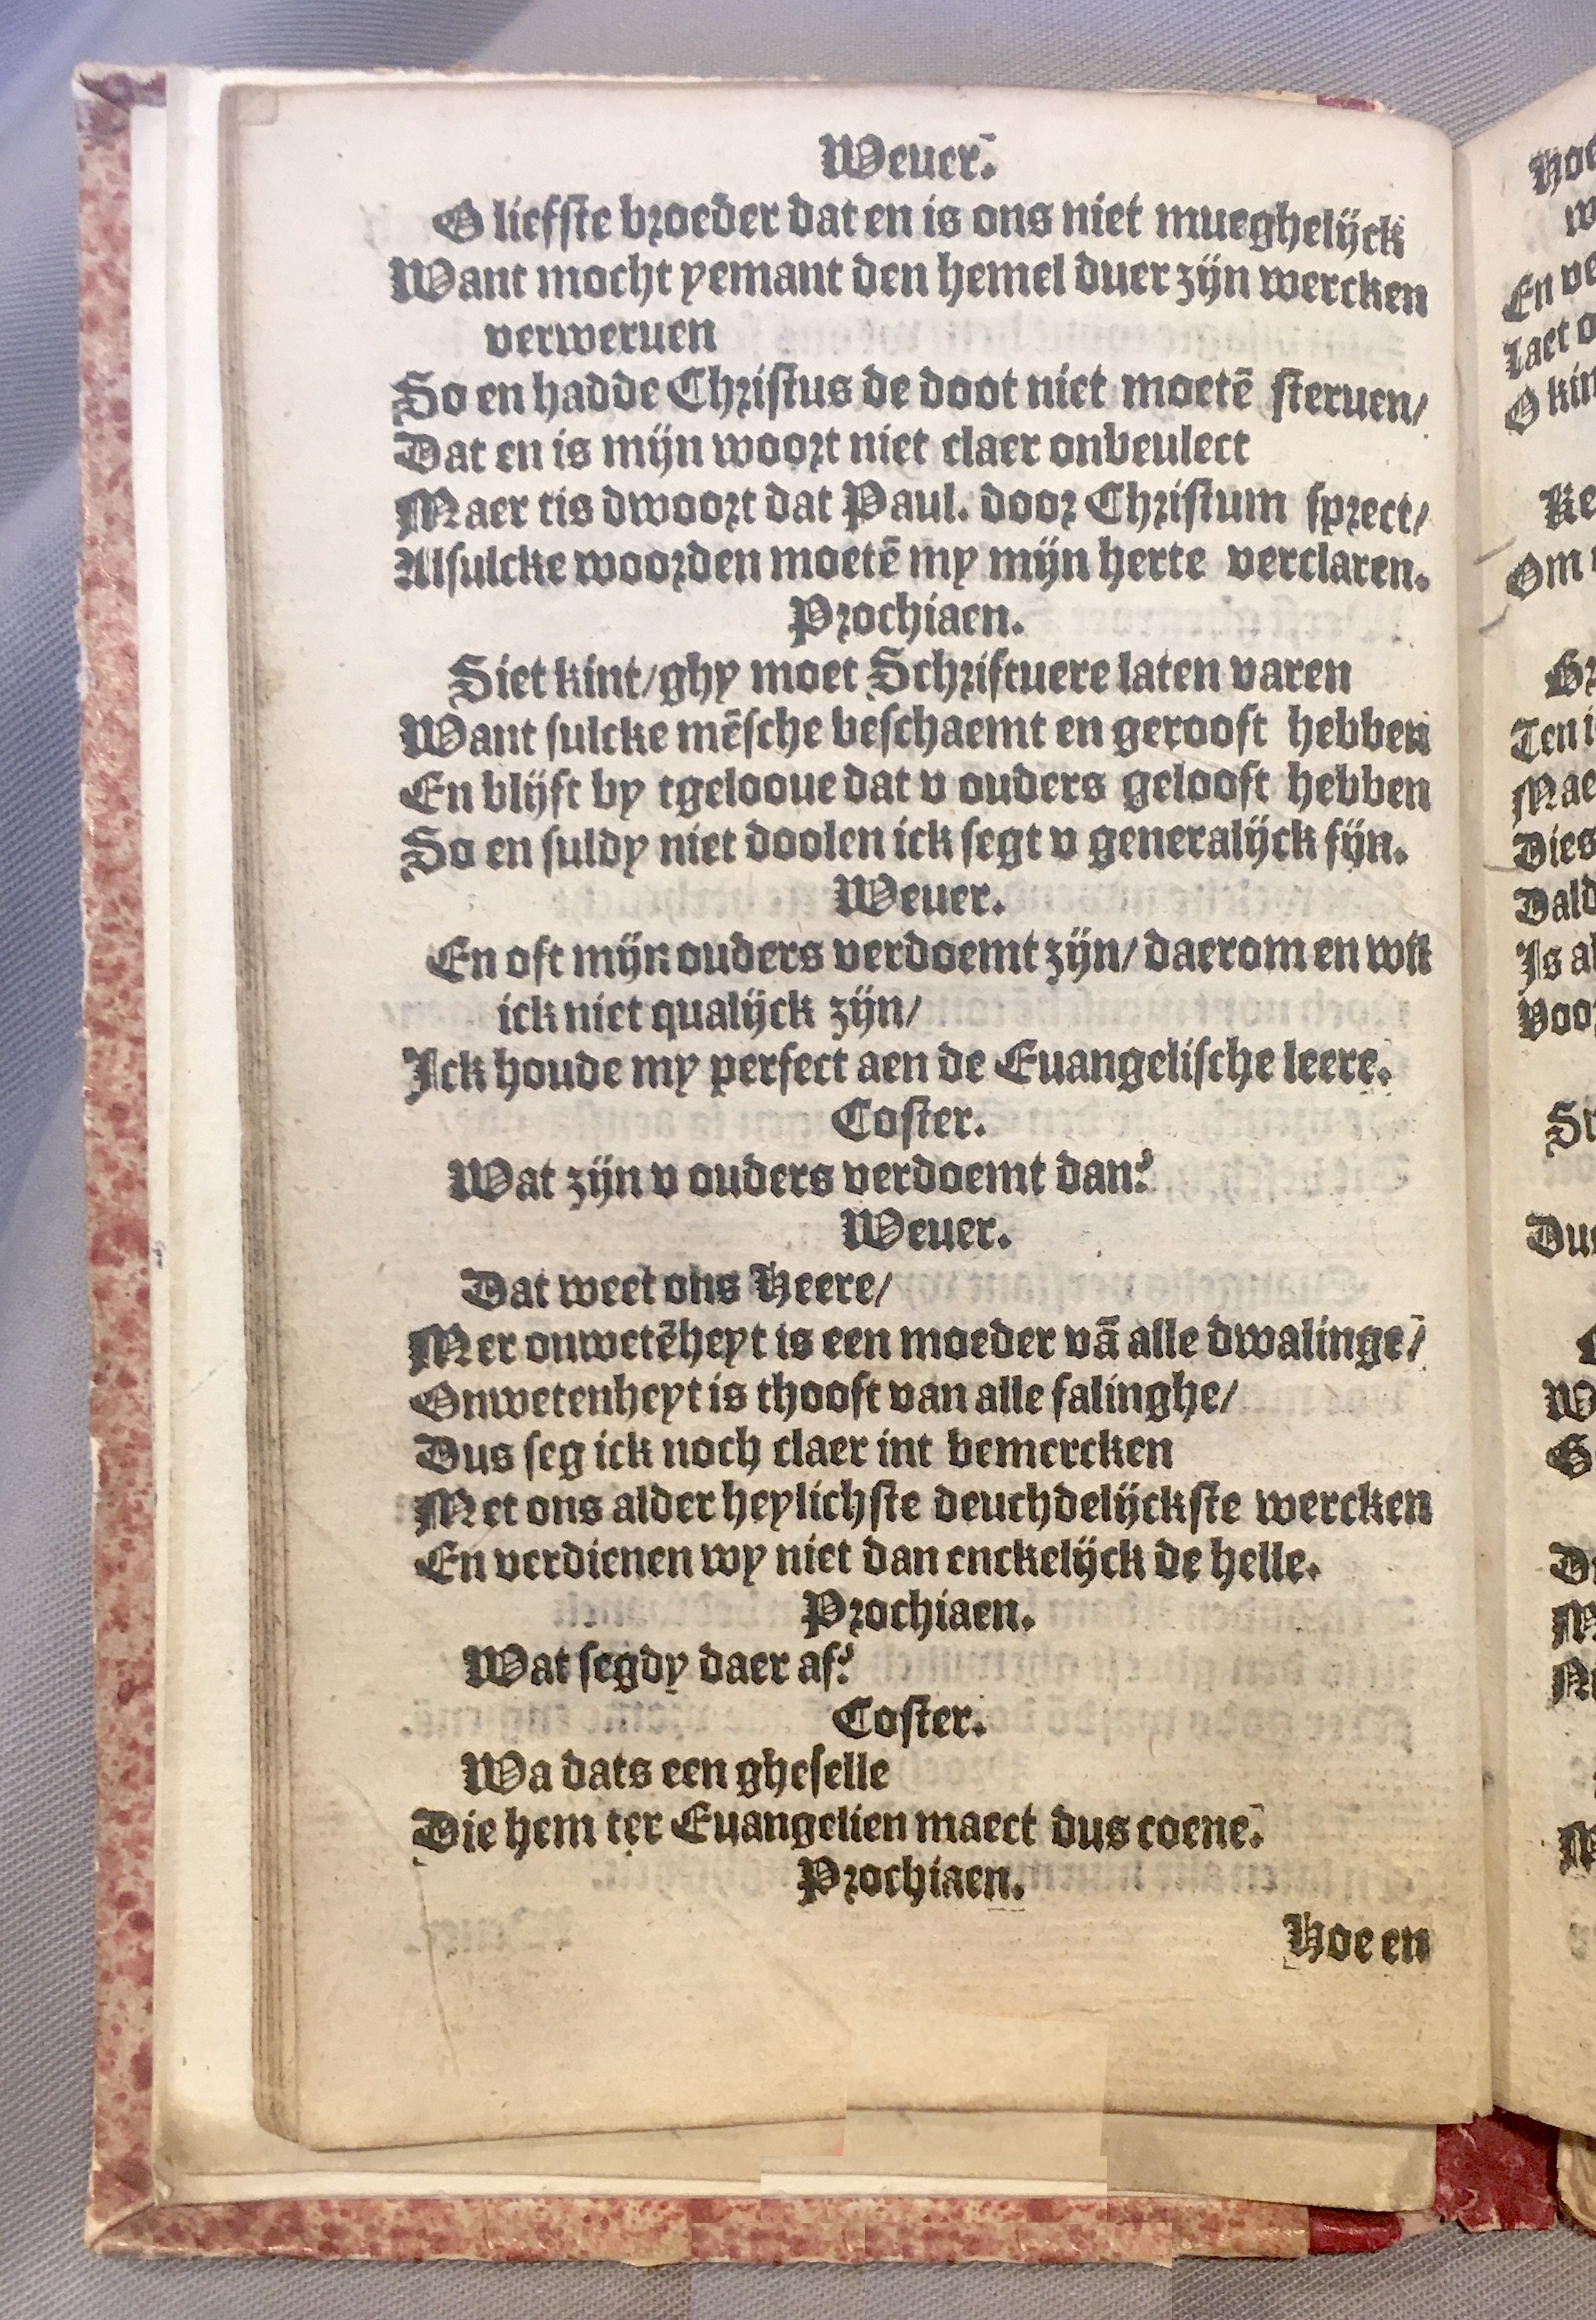 Weuer.
O liefste broeder dat en is ons niet mueghelijck
Want mocht yemant den hemel duer zijn wercken
verweruen
So en hadde Christus de doot niet moetē steruen/
Dat en is mijn woort niet claer onbeulect
Maer tis dwoort dat Paul. door Christum sprect/
Alsulcke woorden moetē my mijn herte verclaren.
Prochiaen.
Siet kint/ghy moet Schriftuere laten varen
Want sulcke mēsche beschaemt en gerooft hebben
En blijft by tgelooue dat v ouders gelooft hebben
So en suldy niet doolen ick segt v generalijck fijn.
Weuer.
En oft mijn ouders verdoemt zijn/ daerom en wil
ick niet qualijck zijn/
Ick houde my perfect aen de Euangelische leere.
Coster.
Wat zijn v ouders verdoemt dan?
Weuer.
Dat weet ons Heere/
Mer onwetēheyt is een moeder vā alle dwalinge/
Onwetenheyt is thooft van alle falinghe/
Dus seg ick noch claer int bemercken
Met ons alder heylichste deuchdelijckste wercken
En verdienen wy niet dan enckelijck de helle.
Prochiaen.
Wat segdy daer af?
Coster.
Wa dats een gheselle
Die hem ter Euangelien maect dus coene.
Prochiaen.
Hoe en